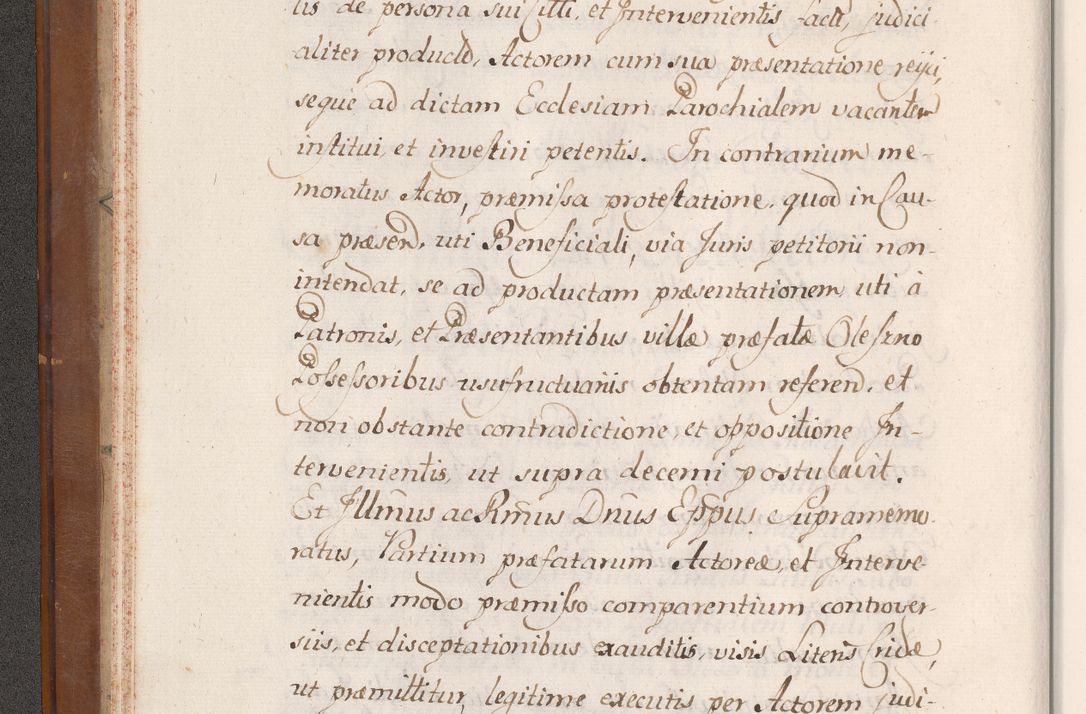 tis de persona sui Citti, et Intervenientis facti, judici-
aliter producto, Actorem cum sua præsentatione reiici,
seque ad dictam Ecclesiam Parochialem vacantem
institui, et investiri petentis. In contrarium me-
moratus Actor, præmissa protestatione, quod in Cau-
sa præsen̅. uti Beneficiali, via Juris petitorii non
intendat, se ad productam præsentationem uti à
Patronis, et Præsentantibus villæ præfatæ Oleszno
Possessoribus usufructuariis obtentam referen̅. et
non obstante contradictione, et oppositione In-
tervenientis, ut supra decerni postulavit.
Et Illm̅us ac Rm̅us Dn̅us Epp̅us Supramemo-
ratus, Partium præfatarum Actoreæ, et Interve-
nientis modo præmisso comparentium controver-
siis, et disceptationibus exauditis, visis Literis Cridæ,
ut præmittitur, legitime executis per Actorem judi-